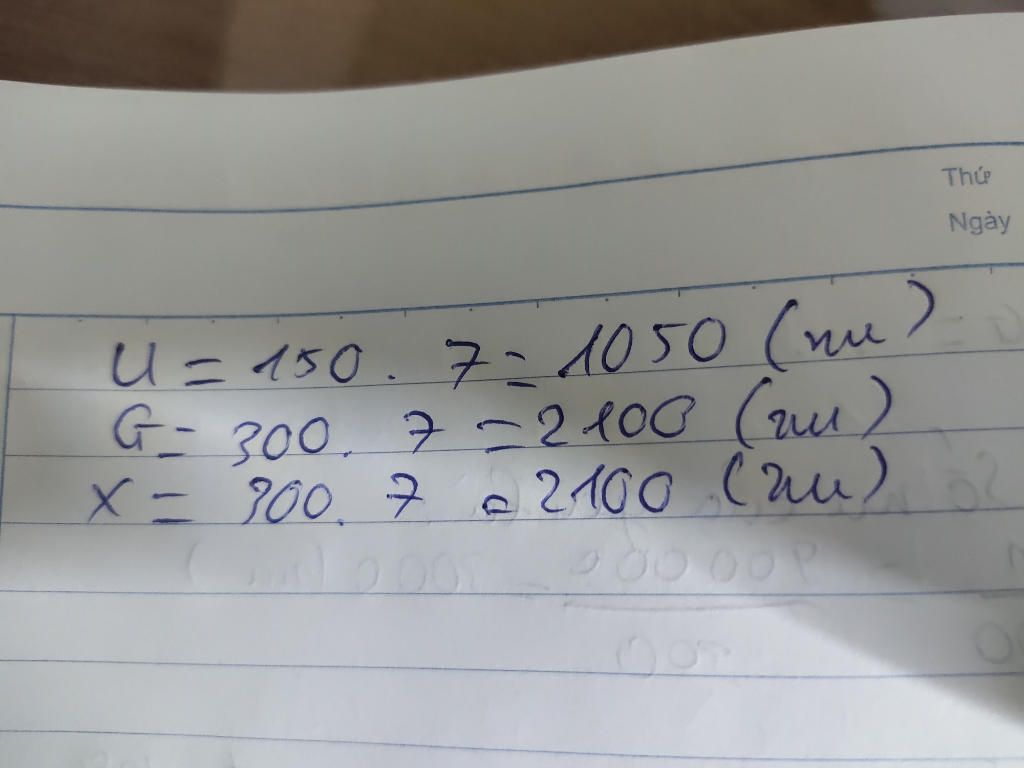 Thứ
Ngày
U = 150. 7 = 1050 (nu)
G = 300. 7 = 2100 (nu)
X = 300. 7 = 2100 (nu)